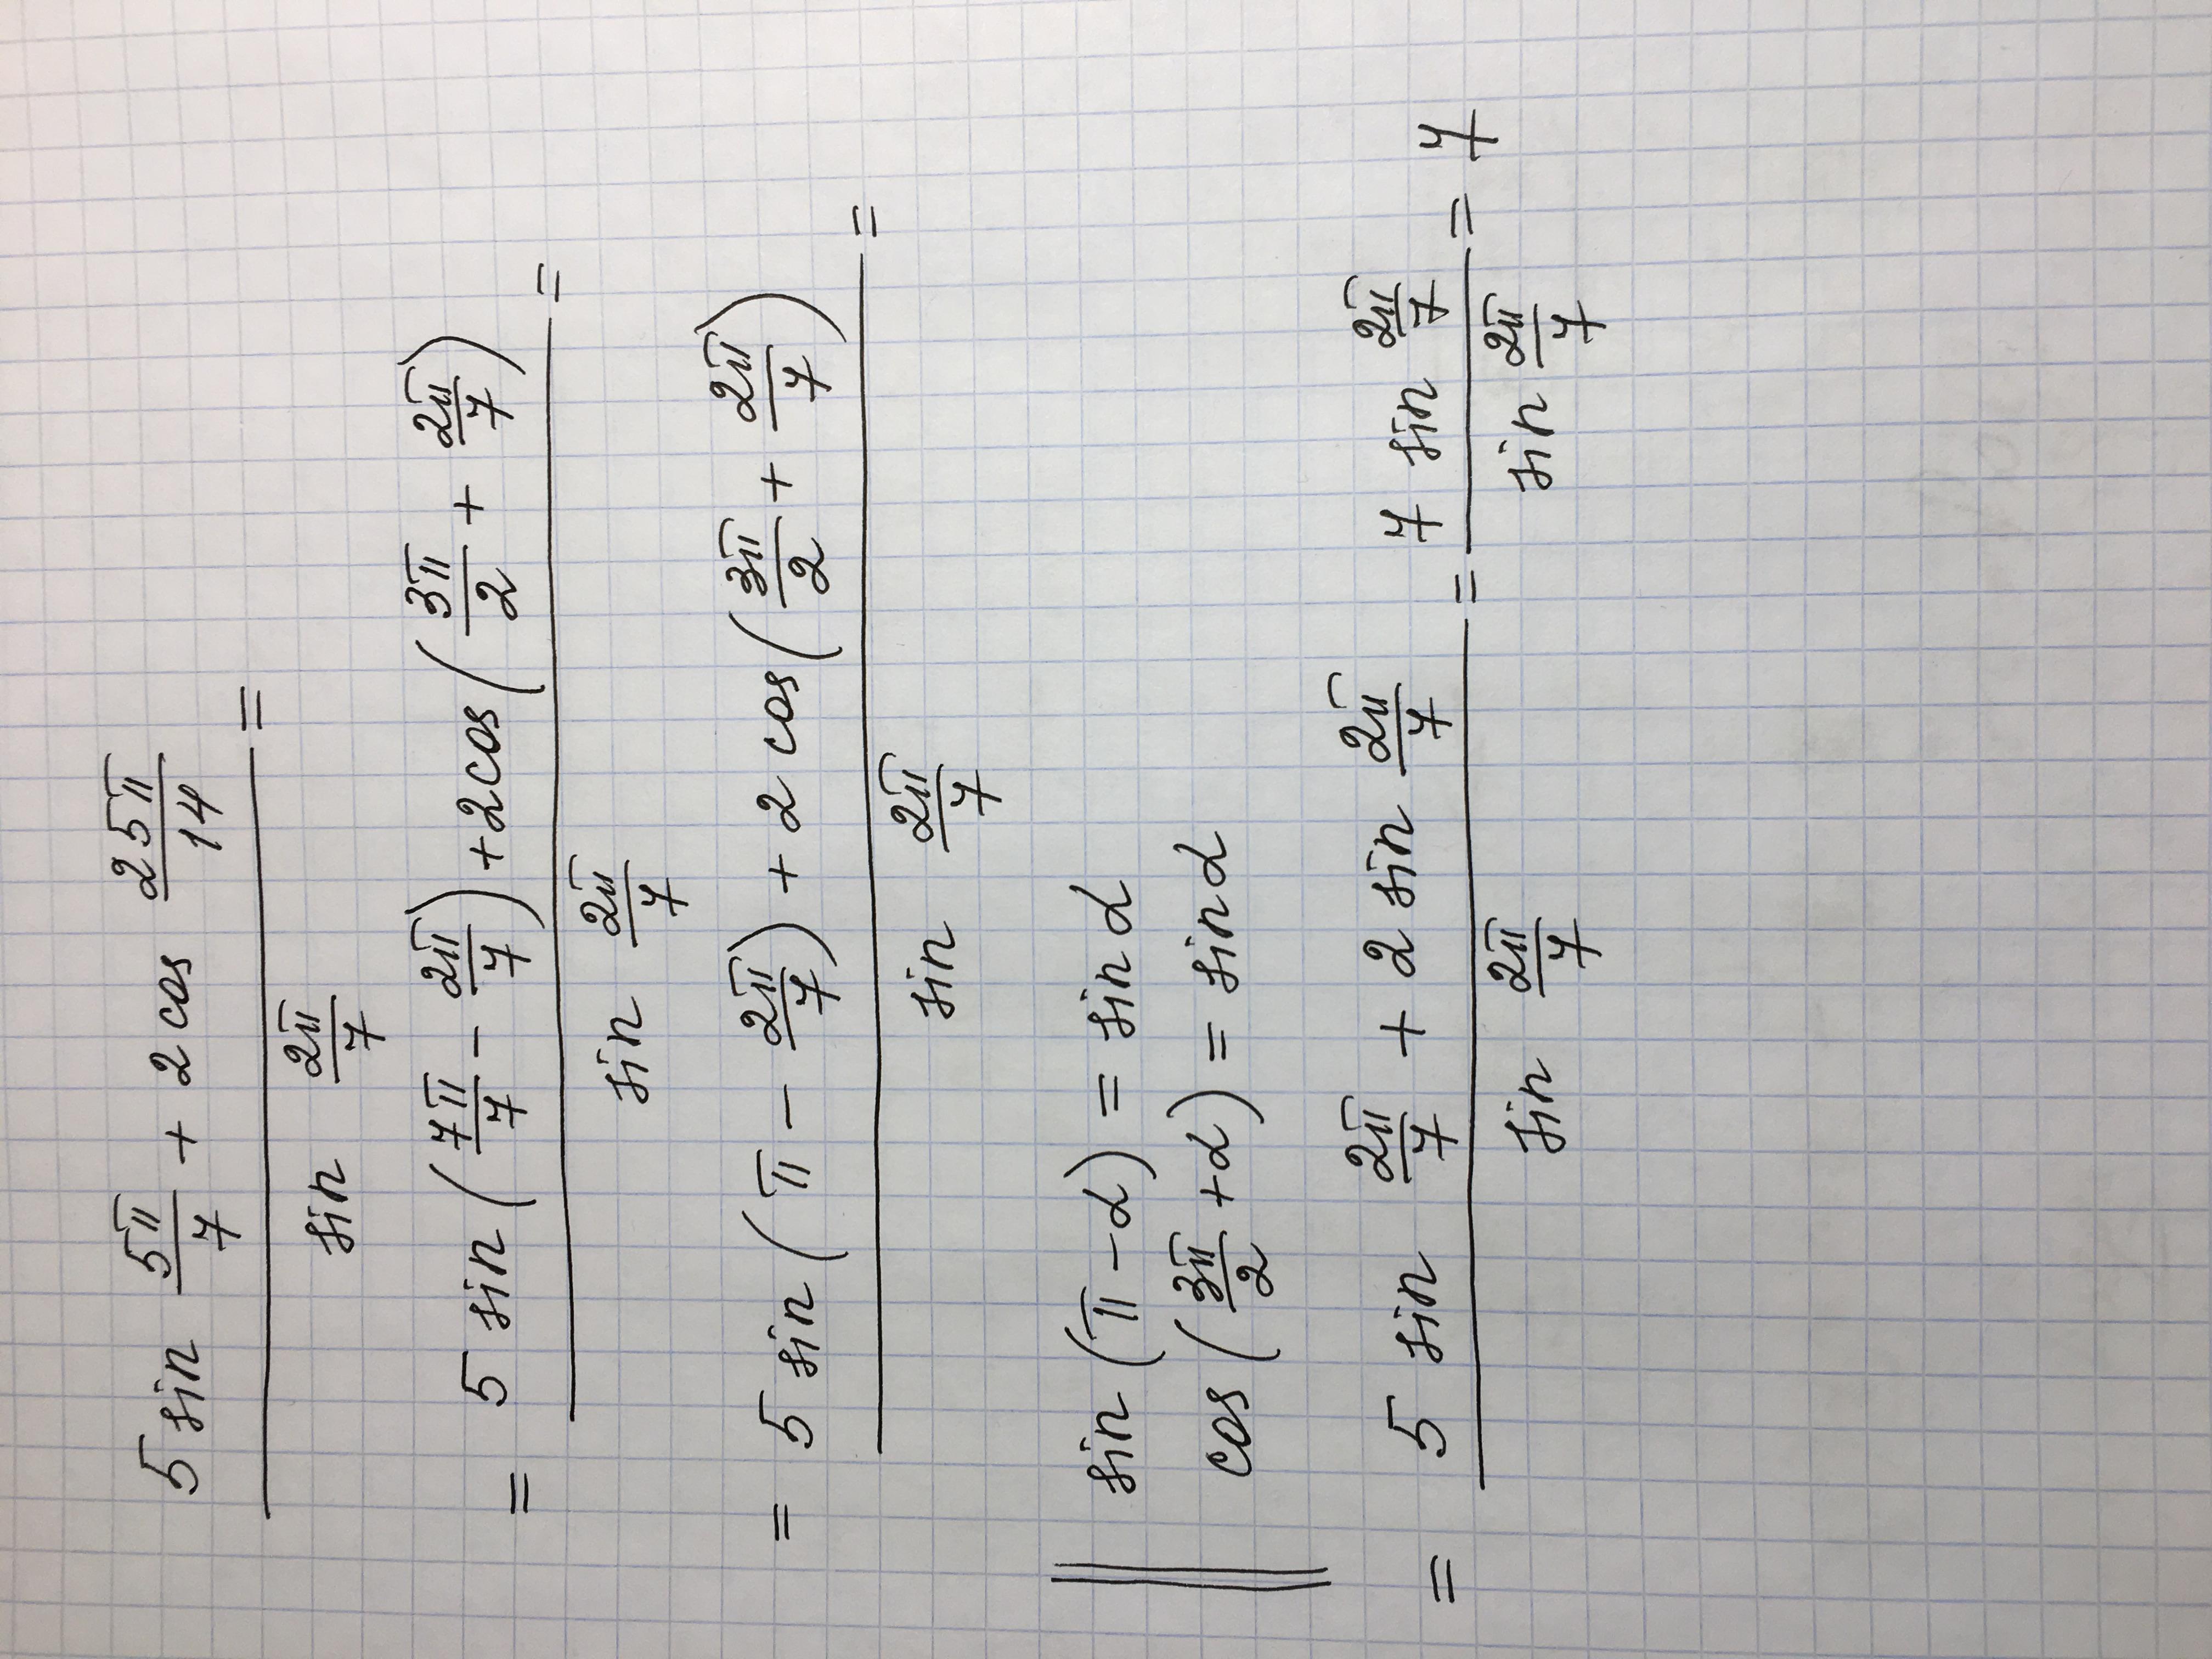 5 sin 5π/7 + 2 cos 25π/14 =
sin 2π/7
= 5 sin (7π/7 - 2π/7) + 2cos (3π/2 + 2π/7) =
sin 2π/7
= 5 sin (π - 2π/7) + 2 cos (3π/2 + 2π/7) =
sin 2π/7
sin (π - α) = sin α
cos (3π/2 + α) = sin α
= 5 sin 2π/7 + 2 sin 2π/7 = 7 sin 2π/7 = 7
sin 2π/7 sin 2π/7